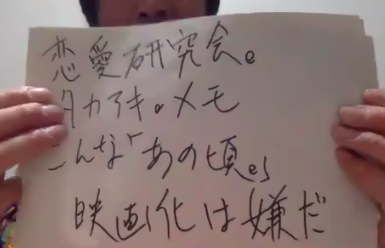 恋愛研究会。
タカアキ。メモ
こんな「あの頃。」
映画化は嫌だ